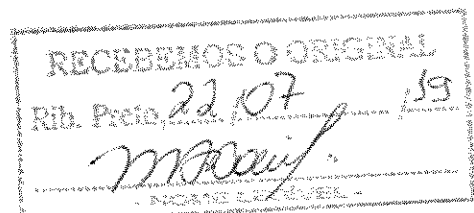 RECEBEMOS O ORIGINAL
Rib. Preto, 22 / 07 / 19
- NOME LEGÍVEL -